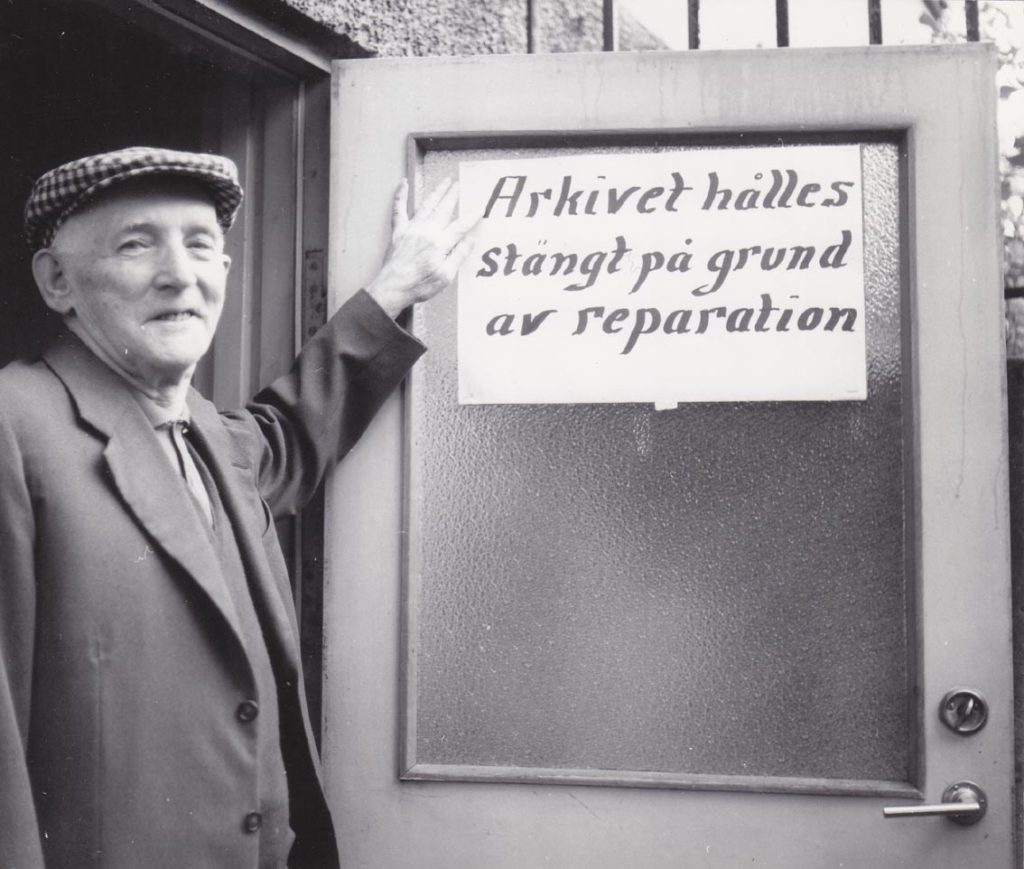 Arkivet hålles
stängt på grund
av reparation